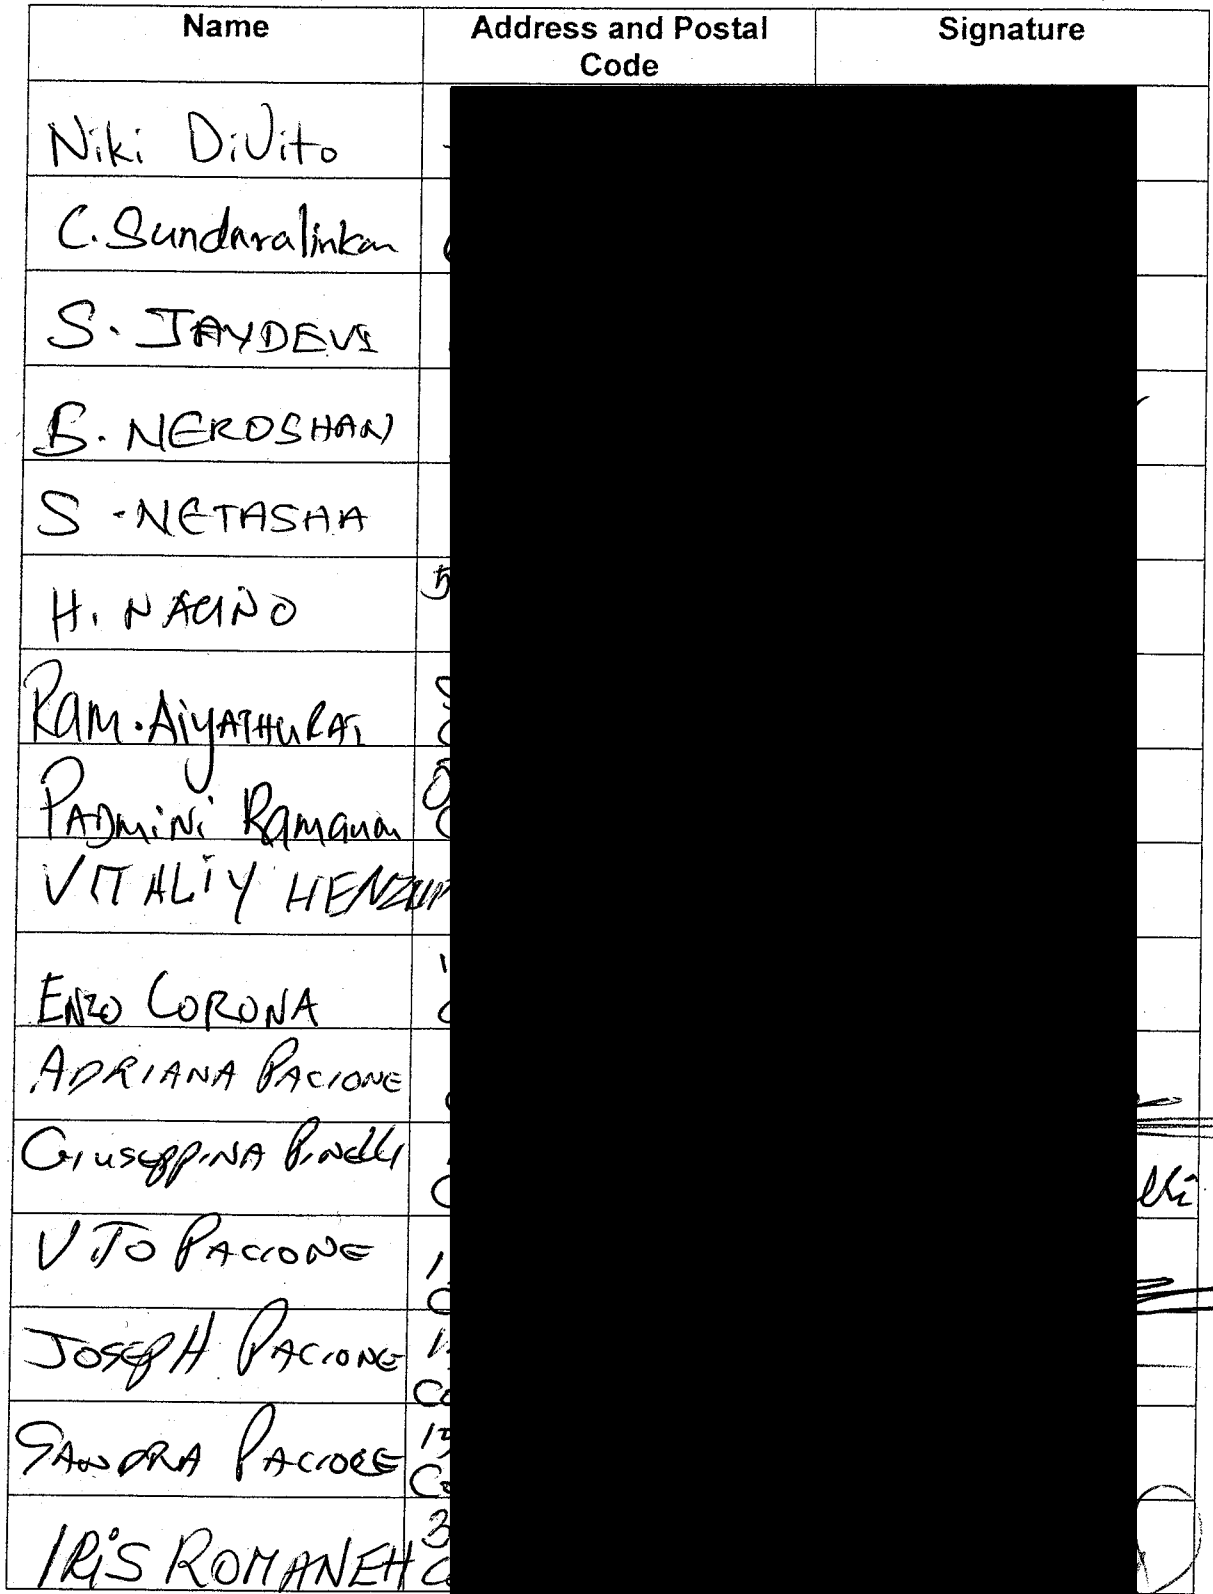 Name Address and Postal Code Signature
Niki DiVito
C. Sundaralinkam
S. JAYDEVI
B. NEROSHAN
S - NETASHA
H. NACINO
5
Ram. AiyATHURAI
PADMiNi
VITALIY
ENZO CORONA
ADRIANA PACIONE
GIUSEPPINA PINELLI
VITO PACIONE
1
JOSEPH PACIONE
Co
SANDRA PACIONE
15
Co
IRIS ROMANEH
3